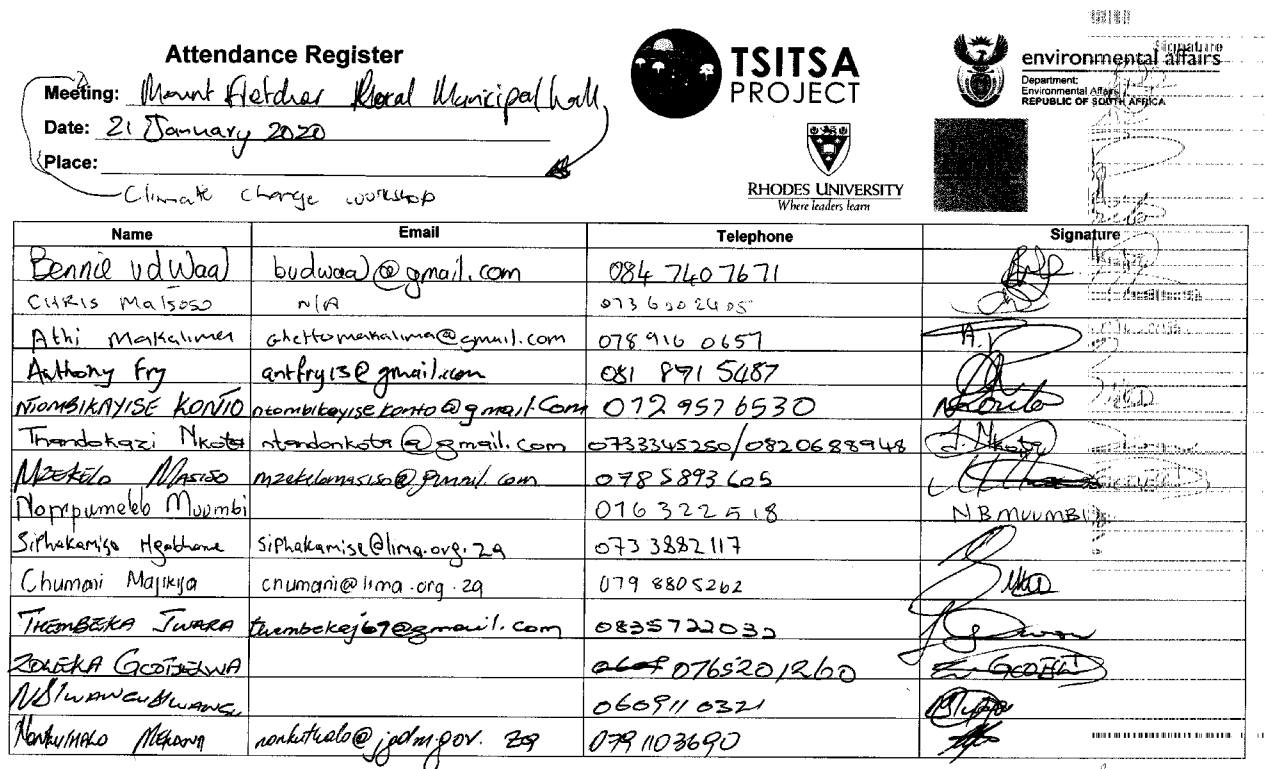 Attendance Register
Meeting: Mount Fletcher Rural Municipal hall
Date: 21 January 2020
Place:
Climate change workshop
TSITSA
PROJECT
RHODES UNIVERSITY
Where leaders learn
environmental affairs
Department:
Environmental Affairs
REPUBLIC OF SOUTH AFRICA
Signature
Name Email Telephone Signature
Bennie vd Waal budwaal@gmail.com 084 740 7671
CHRIS N/A
Athi Makalima ghettomakalima@gmail.com 078 916 0657
Anthony Fry antfry13@gmail.com 081 891 5487
NTOMBIKAYISE KONTO ntombikayise konto@gmail.com 072 957 6530
Thandokazi Nkota ntandonkota@gmail.com 0733345250/0820688948 T. Nkota
MZEKELO MASISO mzekelomasiso@gmail.com 0785893605
Mvumbi 076 322 518 NB MVUMBI
Siphakamise siphakamise@lima.org.za 073 3882117
Chumani Majikija chumani@lima.org.za 079 8805262
THEMBEKA JWARA thembekaj67@gmail.com 0835722032
ZOLEKA 0765201260
0609110321
nonkuthalo@jgdm.gov.za 079103690